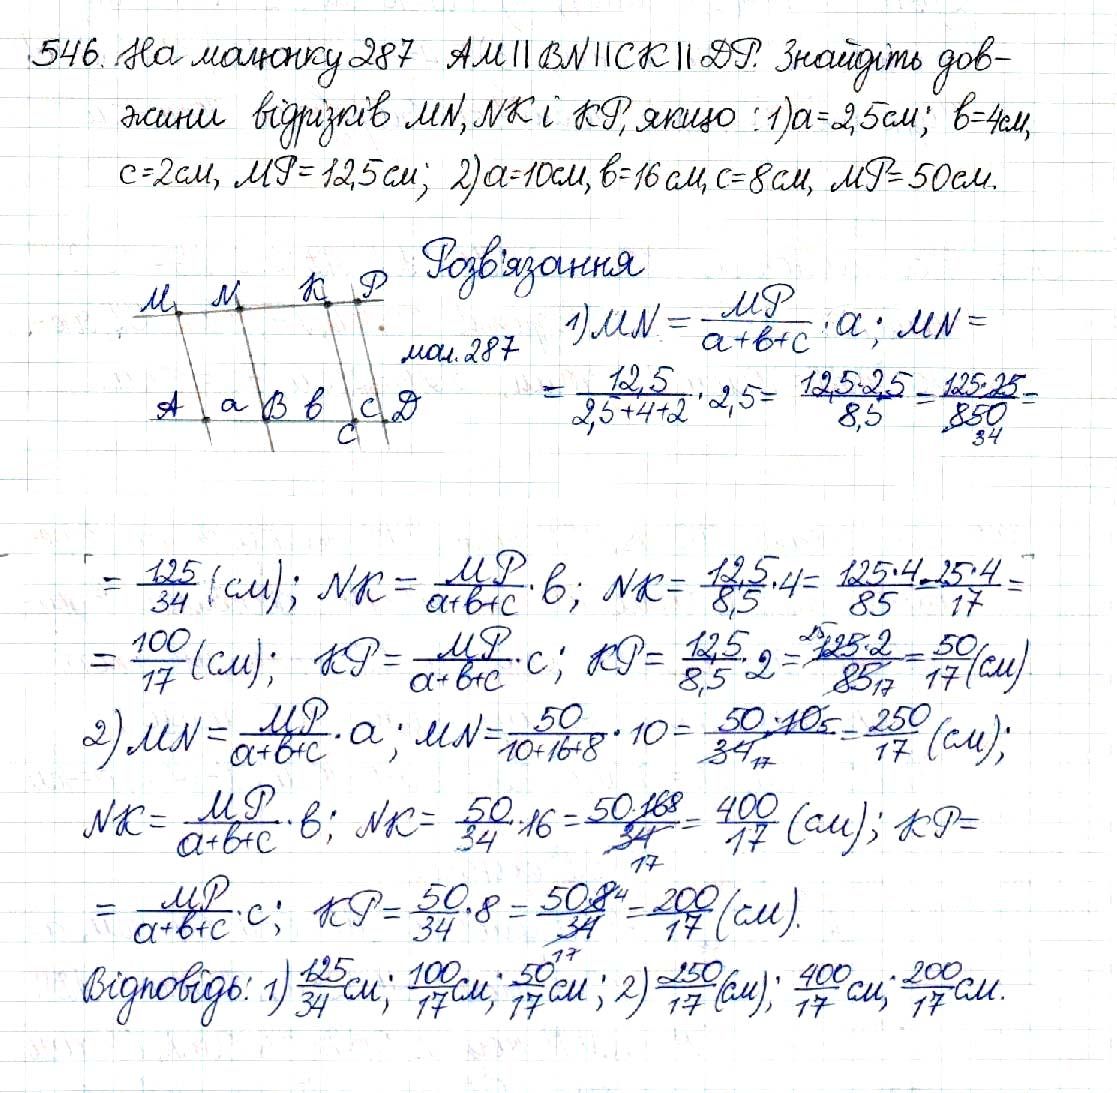 546. На малюнку 287 AM||BN||CK||DP. Знайдіть дов-
жини відрізків MN, NK і KP, якщо: 1) a=2,5см; в=4см,
c=2см, MP=12,5см; 2) a=10см, в=16см, c=8см, MP=50см.
Розв'язання
M N K P
мал.287
A a B в c D
C
1) MN = MP/(a+в+c) · a; MN =
= 12,5/(2,5+4+2) · 2,5 = 12,5·2,5/8,5 = 125·25/850 34 =
= 125/34 (см); NK = MP/(a+в+c) · в; NK = 12,5/8,5 · 4 = 125·4/85 = 25·4/17 =
= 100/17 (см); KP = MP/(a+в+c) · c; KP = 12,5/8,5 · 2 = 25 125·2/85 17 = 50/17 (см)
2) MN = MP/(a+в+c) · a; MN = 50/(10+16+8) · 10 = 50·10 5/34 17 = 250/17 (см);
NK = MP/(a+в+c) · в; NK = 50/34 · 16 = 50·16 8/34 17 = 400/17 (см); KP =
= MP/(a+в+c) · c; KP = 50/34 · 8 = 50·8 4/34 17 = 200/17 (см).
Відповідь: 1) 125/34 см; 100/17 см; 50/17 см; 2) 250/17 (см); 400/17 см; 200/17 см.